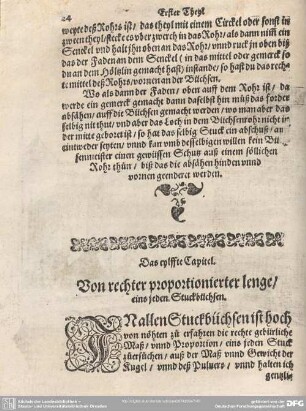 24 Erster Theyl
weyte deß Rohrs ist / das theyl mit einem Circkel oder sonst in
zwen theyl / stecke es uber zwerch in das Rohr / als dann nim̃ ein
Senckel und halt jhn oben an das Rohr / unnd ruck in oben biß
das der Faden an dem Senckel ( in das mittel oder gemerck so
du an dem Höltzlin gemacht hast) instande / so hast du das rech-
te mittel deß Rohrs / vornen an der Büchsen.
Wo als dann der Faden / oben auff dem Rohr ist / da
werde ein gemerck gemacht dann daselbst hin muß das forder
absähen / auff die Büchsen gemacht werden / wo man aber das
selbig nit thut / und aber das Loch in dem Büchsenrohr nicht in
der mitte geboret ist / so hat das selbig Stuck ein abschuß / an
eintweder seyten / unnd kan umb desselbigen willen kein Bü-
senmeister einen gewüssen Schutz auß einem söllichen
Rohr thün / biß das die absähen hinden unnd
vornen geendert werden.
Das eylffte Capitel.
Von rechter proportionierter lenge /
eins jeden Stuckbüchsen.
IN allen Stuckbüchsen ist hoch
von nöhten zü erfahren die rechte gebürliche
Maß / unnd Proportion / eins jeden Stuck
züersüchen / auß der Maß unnd Gewicht der
Kugel / unnd deß Pulvers / unnd halten ich
gentzlich